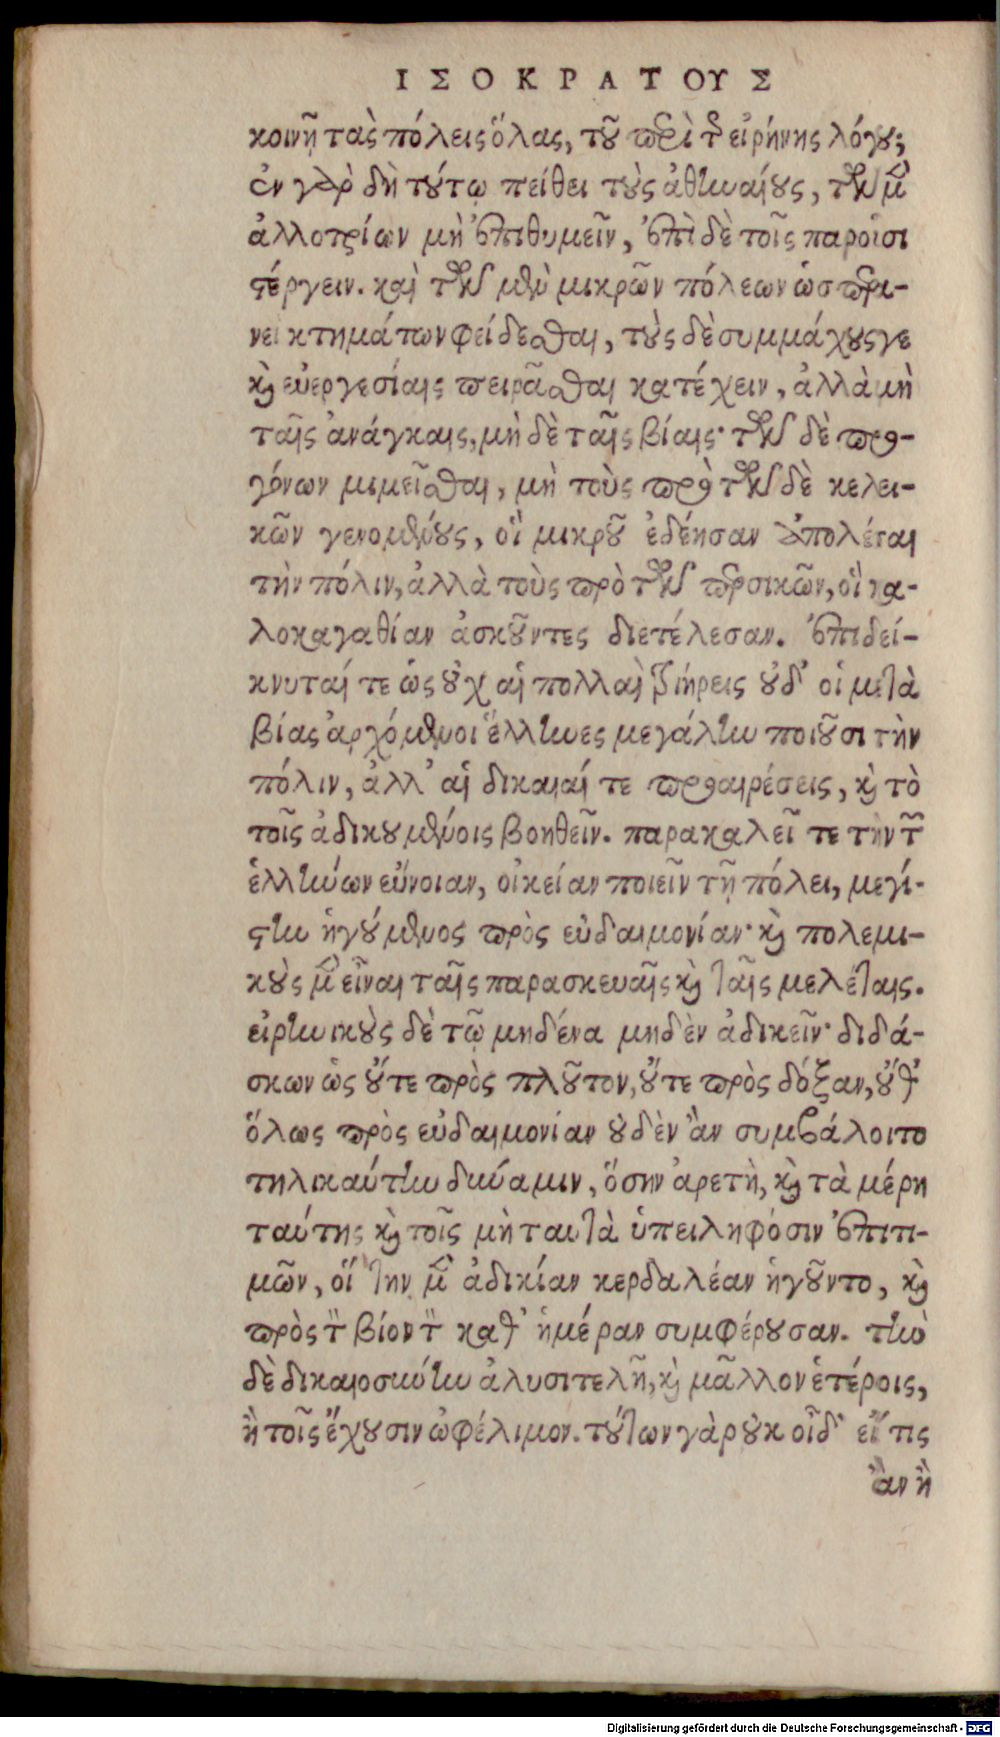 ΙΣΟΚΡΑΤΟΥΣ
κοινῇ τὰς πόλεις ὅλας, τοῦ περὶ τῆς εἰρήνης λόγου;
ἐν γὰρ δὴ τούτῳ πείθει τοὺς ἀθηναίους, τῶν μὲν
ἀλλοτρίων μὴ ἐπιθυμεῖν, ἐπὶ δὲ τοῖς παροῦσι
στέργειν. καὶ τῶν μὲν μικρῶν πόλεων ὡσπερι-
νεὶ κτημάτων φείδεσθαι, τοὺς δὲ συμμάχους γε
καὶ εὐεργεσίαις πειρᾶσθαι κατέχειν, ἀλλὰ μὴ
ταῖς ἀνάγκαις, μὴ δὲ ταῖς βίαις· τῶν δὲ προ-
γόνων μιμεῖσθαι, μὴ τοὺς πρὸ τῶν δὲ κελει-
κῶν γενομένους, οἳ μικροῦ ἐδέησαν ἀπολέσαι
τὴν πόλιν, ἀλλὰ τοὺς πρὸ τῶν περσικῶν, οἳ κα-
λοκαγαθίαν ἀσκοῦντες διετέλεσαν. ἐπιδεί-
κνυταί τε ὡς οὐχ αἱ πολλαὶ τριήρεις οὐδ' οἱ μετὰ
βίας ἀρχόμενοι ἕλληνες μεγάλην ποιοῦσι τὴν
πόλιν, ἀλλ' αἱ δίκαιαί τε προαιρέσεις, καὶ τὸ
τοῖς ἀδικουμένοις βοηθεῖν. παρακαλεῖ τε τὴν τῶν
ἑλλήνων εὔνοιαν, οἰκείαν ποιεῖν τῇ πόλει, μεγί-
στην ἡγούμενος πρὸς εὐδαιμονίαν· καὶ πολεμι-
κοὺς μὲν εἶναι ταῖς παρασκευαῖς καὶ ταῖς μελέταις.
εἰρηνικοὺς δὲ τῷ μηδένα μηδὲν ἀδικεῖν· διδά-
σκων ὡς οὔτε πρὸς πλοῦτον, οὔτε πρὸς δόξαν, οὔθ'
ὅλως πρὸς εὐδαιμονίαν οὐδὲν ἂν συμβάλοιτο
τηλικαύτην δύναμιν, ὅσην ἀρετὴ, καὶ τὰ μέρη
ταύτης καὶ τοῖς μὴ ταυτὰ ὑπειληφόσιν ἐπιτι-
μῶν, οἵ τὴν μὲν ἀδικίαν κερδαλέαν ἡγοῦντο, καὶ
πρὸς τὸν βίον τὸν καθ' ἡμέραν συμφέρουσαν. τὴν
δὲ δικαιοσύνην ἀλυσιτελῆ, καὶ μᾶλλον ἑτέροις,
ἢ τοῖς ἔχουσιν ὠφέλιμον. τούτων γὰρ οὐκ οἶδ' εἴ τις
ἂν ἢ
Digitalisierung gefördert durch die Deutsche Forschungsgemeinschaft - DFG